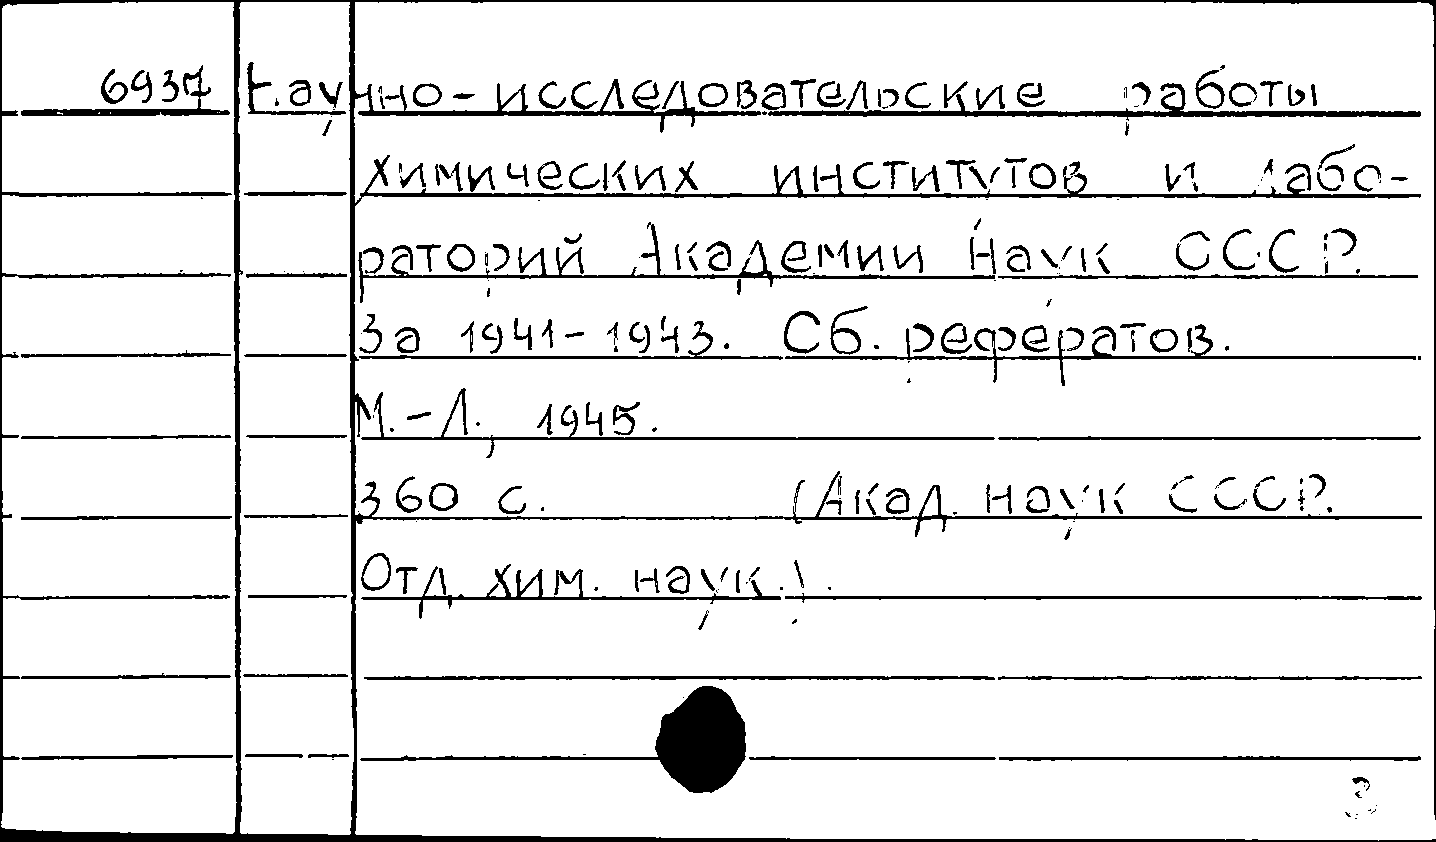 6937 Научно-исследовательские работы
химических институтов и лабо-
раторий Академии Наук СССР.
За 1941-1943. Сб. рефератов.
М.-Л., 1945.
360 с. (Акад. наук СССР.
Отд. хим. наук.).
3